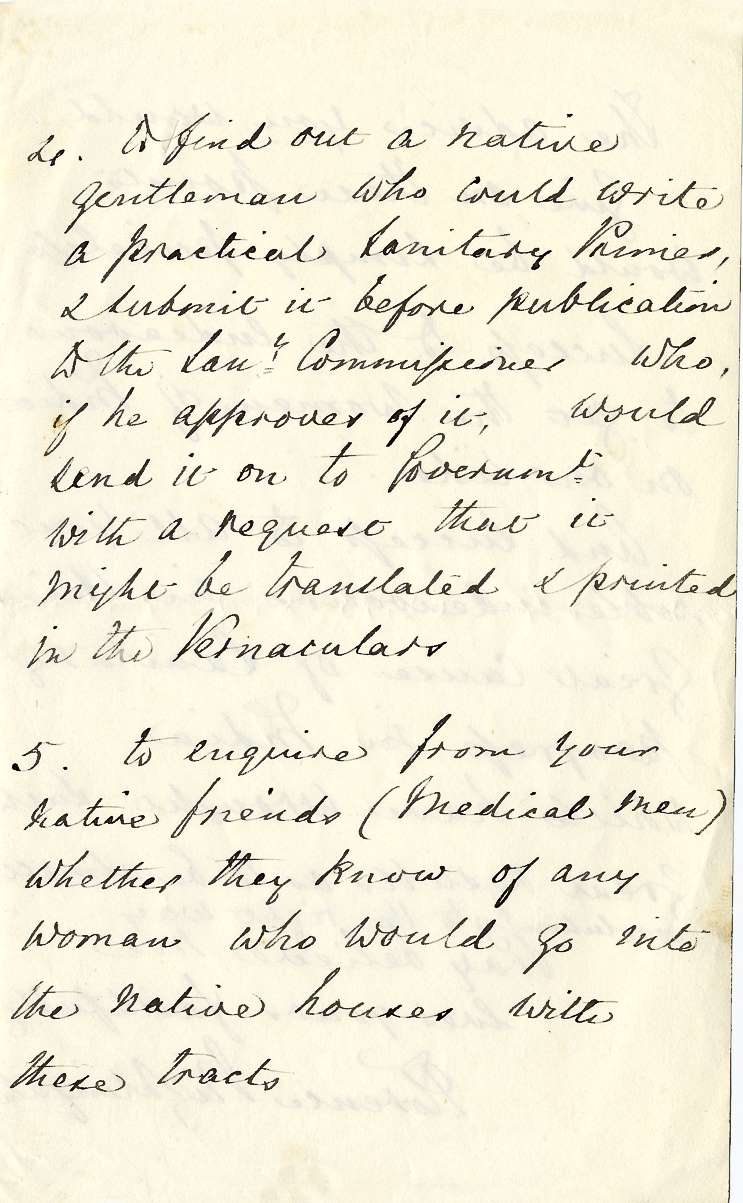 4. to find out a native
gentleman who could write
a practical Sanitary Primer,
& submit it before publication
to the San^y. Commissioner who,
if he approves of it, would
send it on to Governm^t.
with a request that it
might be translated & printed
in the Vernaculars
5. to enquire from your
native friends (Medical men)
whether they know of any
woman who would go into
the native houses with
these tracts